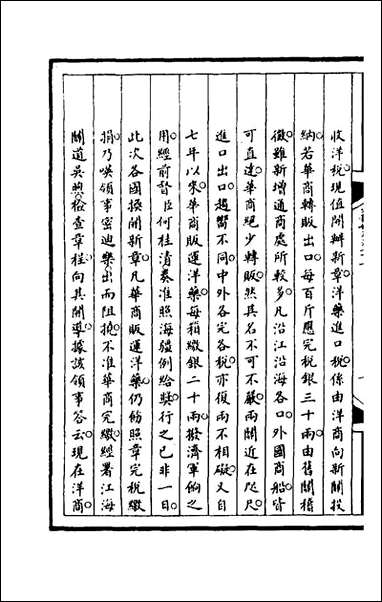 收洋稅現值開辦新章洋藥進口稅係由洋商向新關投
納若華商轉販出口每百斤應完稅銀三十兩由舊關稽
徵雖新增通商處所較多凡沿江沿海各口外國商船皆
可直達華商絕少轉販然其名不可不嚴兩關近在咫尺
進口出口趨嚮不同中外各完各稅亦復兩不相礙又自
七年以來華商販運洋藥每箱繳銀二十兩撥濟軍餉之
用經前督臣何桂清奏准照海疆例給獎行之已非一日
此次各國換開新章凡華商販運洋藥仍飭照章完稅繳
捐乃𠸄領事密迪樂出而阻撓不准華商完繳經署江海
關道吳煦檢查章程向其開導據該領事答云現在洋商